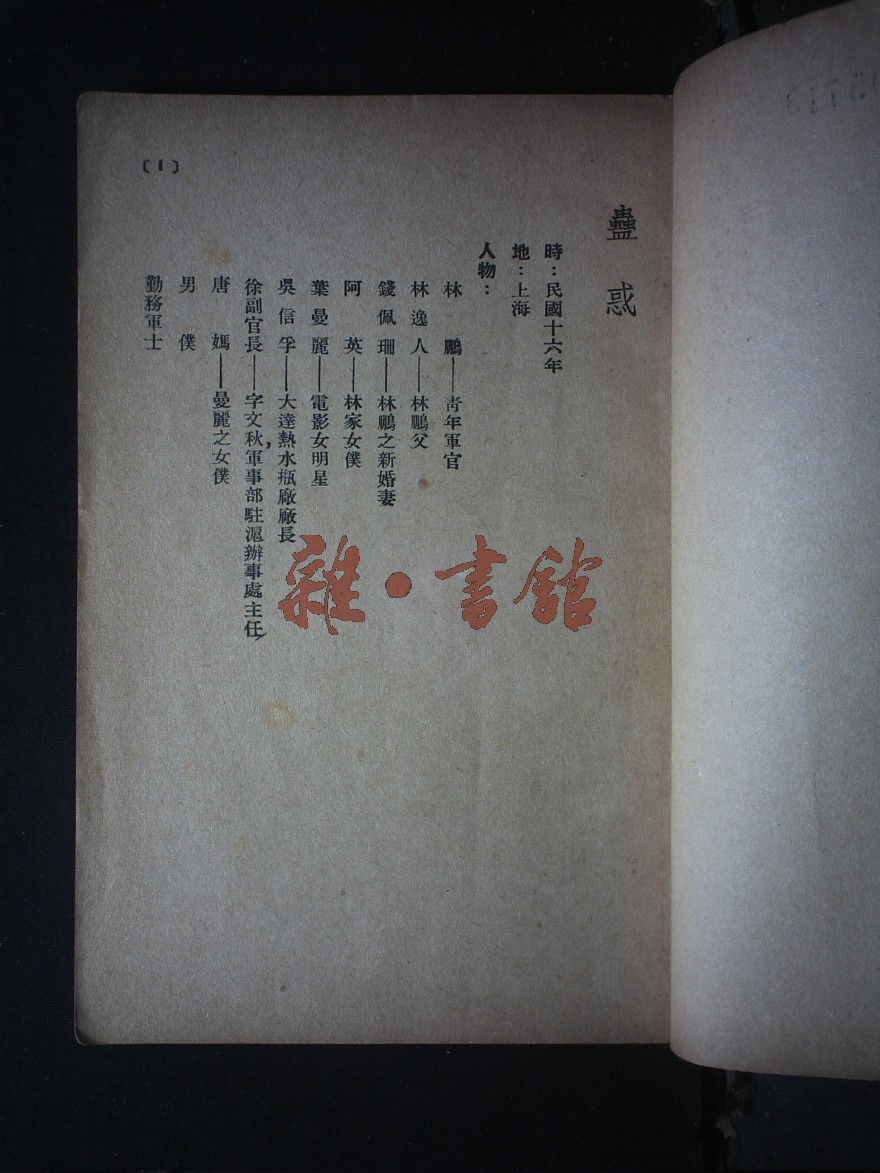 蠱惑
時：民國十六年
地：上海
人物：
林　鵬——青年軍官
林逸人——林鵬父
錢佩珊——林鵬之新婚妻
阿　英——林家女僕
葉曼麗——電影女明星
吳信孚——大達熱水瓶廠廠長
徐副官長——字文秋，軍事部駐滬辦事處主任
唐　媽——曼麗之女僕
男　僕
勤務軍士
〔1〕
雜·書館